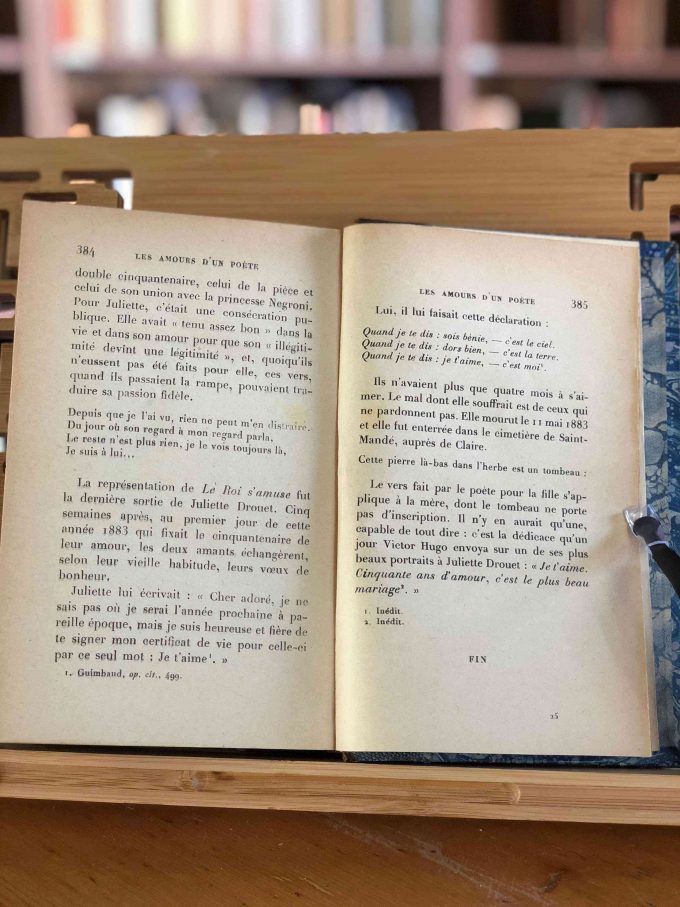 384
LES AMOURS D'UN POÈTE
double cinquantenaire, celui de la pièce et
celui de son union avec la princesse Negroni.
Pour Juliette, c'était une consécration pu-
blique. Elle avait « tenu assez bon » dans la
vie et dans son amour pour que son « illégiti-
mité devînt une légitimité », et, quoiqu'ils
n'eussent pas été faits pour elle, ces vers,
quand ils passaient la rampe, pouvaient tra-
duire sa passion fidèle.
Depuis que je l'ai vu, rien ne peut m'en distraire.
Du jour où son regard à mon regard parla,
Le reste n'est plus rien, je le vois toujours là,
Je suis à lui...
La représentation de Le Roi s'amuse fut
la dernière sortie de Juliette Drouet. Cinq
semaines après, au premier jour de cette
année 1883 qui fixait le cinquantenaire de
leur amour, les deux amants échangèrent,
selon leur vieille habitude, leurs vœux de
bonheur.
Juliette lui écrivait : « Cher adoré, je ne
sais pas où je serai l'année prochaine à pa-
reille époque, mais je suis heureuse et fière de
te signer mon certificat de vie pour celle-ci
par ce seul mot : Je t'aime¹. »
1. Guimbaud, op. cit., 499.
LES AMOURS D'UN POÈTE
385
Lui, il lui faisait cette déclaration :
Quand je te dis : sois bénie, — c'est le ciel.
Quand je te dis : dors bien, — c'est la terre.
Quand je te dis : je t'aime, — c'est moi¹.
Ils n'avaient plus que quatre mois à s'ai-
mer. Le mal dont elle souffrait est de ceux qui
ne pardonnent pas. Elle mourut le 11 mai 1883
et elle fut enterrée dans le cimetière de Saint-
Mandé, auprès de Claire.
Cette pierre là-bas dans l'herbe est un tombeau :
Le vers fait par le poète pour la fille s'ap-
plique à la mère, dont le tombeau ne porte
pas d'inscription. Il n'y en aurait qu'une,
capable de tout dire : c'est la dédicace qu'un
jour Victor Hugo envoya sur un de ses plus
beaux portraits à Juliette Drouet : « Je t'aime.
Cinquante ans d'amour, c'est le plus beau
mariage². »
1. Inédit.
2. Inédit.
FIN
25